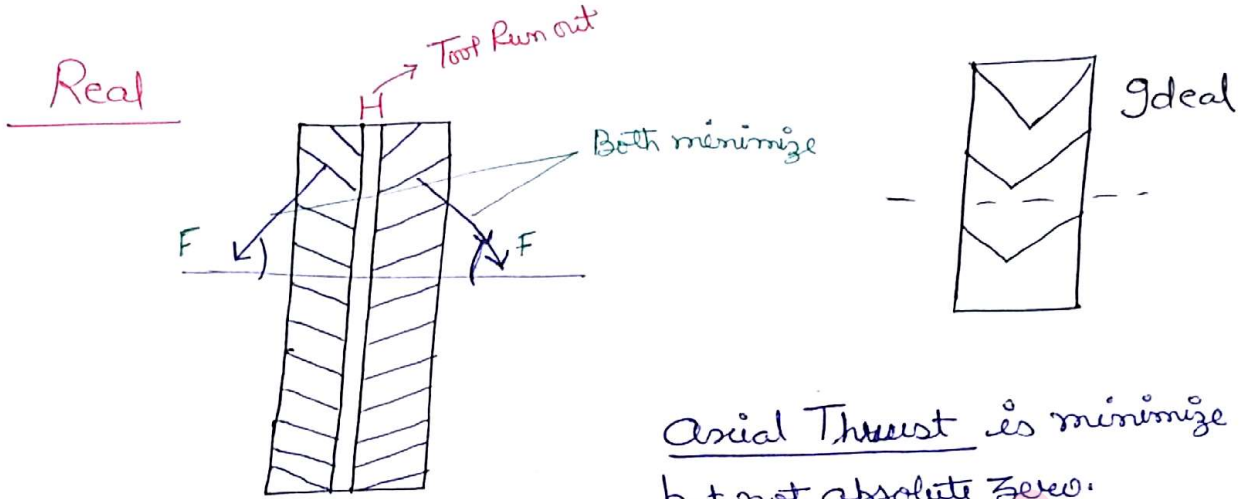 Real
Tool Run out
H
Both minimize
Ideal
F
F
Axial Thrust is minimize
but not absolute zero.